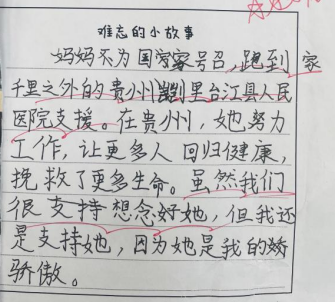 难志的小故事
妈妈不为国家号召,跑到家
千里之外的贵州凯里台江县人民
医院支援。在贵州,她努力
工作,让更多人回归健康,
挽救了更多生命。虽然我们
很支持想念好她,但我还
是支持她,因为她是我的娇
骄傲。